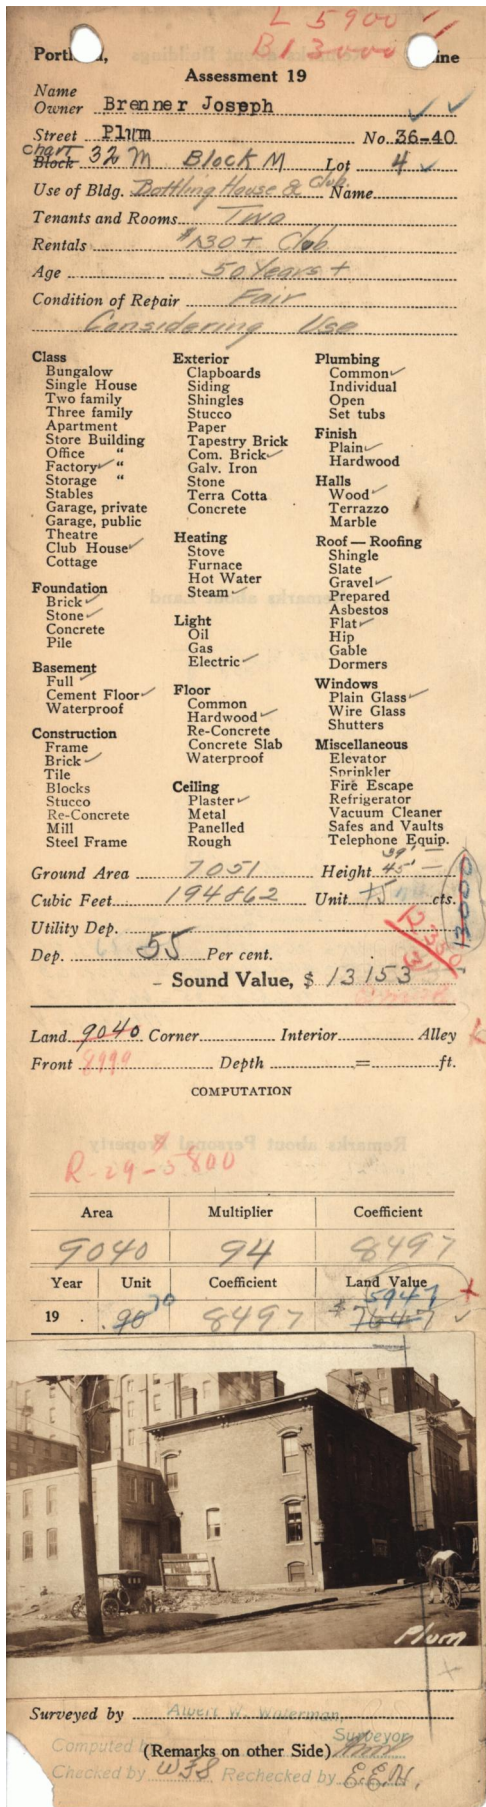 L 5900
B 13000
Portland, ine
Assessment 19
Name
Owner Brenner Joseph
Street Plum No. 36-40
Chart
Block 32 M Block M Lot 4
Use of Bldg. Bottling House & Club Name
Tenants and Rooms Two
Rentals $130 + Club
Age 50 Years +
Condition of Repair Fair
Considering Use
Class
Bungalow
Single House
Two family
Three family
Apartment
Store Building
Office "
Factory "
Storage "
Stables
Garage, private
Garage, public
Theatre
Club House
Cottage
Foundation
Brick
Stone
Concrete
Pile
Basement
Full
Cement Floor
Waterproof
Construction
Frame
Brick
Tile
Blocks
Stucco
Re-Concrete
Mill
Steel Frame
Exterior
Clapboards
Siding
Shingles
Stucco
Paper
Tapestry Brick
Com. Brick
Galv. Iron
Stone
Terra Cotta
Concrete
Heating
Stove
Furnace
Hot Water
Steam
Light
Oil
Gas
Electric
Floor
Common
Hardwood
Re-Concrete
Concrete Slab
Waterproof
Ceiling
Plaster
Metal
Panelled
Rough
Plumbing
Common
Individual
Open
Set tubs
Finish
Plain
Hardwood
Halls
Wood
Terrazzo
Marble
Roof — Roofing
Shingle
Slate
Gravel
Prepared
Asbestos
Flat
Hip
Gable
Dormers
Windows
Plain Glass
Wire Glass
Shutters
Miscellaneous
Elevator
Sprinkler
Fire Escape
Refrigerator
Vacuum Cleaner
Safes and Vaults
Telephone Equip.
39'
Ground Area 7051 Height 45'
Cubic Feet 194862 Unit 15 cts.
13000
Utility Dep.
Dep. 55 Per cent.
Sound Value, $ 13153
Land 9040 Corner Interior Alley
Front 8999 Depth = ft.
COMPUTATION
R-29-$5800
Area Multiplier Coefficient
9040 94 8497
Year Unit Coefficient Land Value
70 5947
19 . 90 8497 $7647
Plum
Surveyed by Albert W. Waterman,
Surveyor
Computed b
(Remarks on other Side)
Checked by WJS Rechecked by E.E.N.